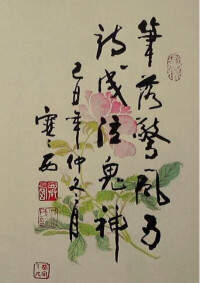 筆落驚風雨
詩成泣鬼神
己丑年仲冬月